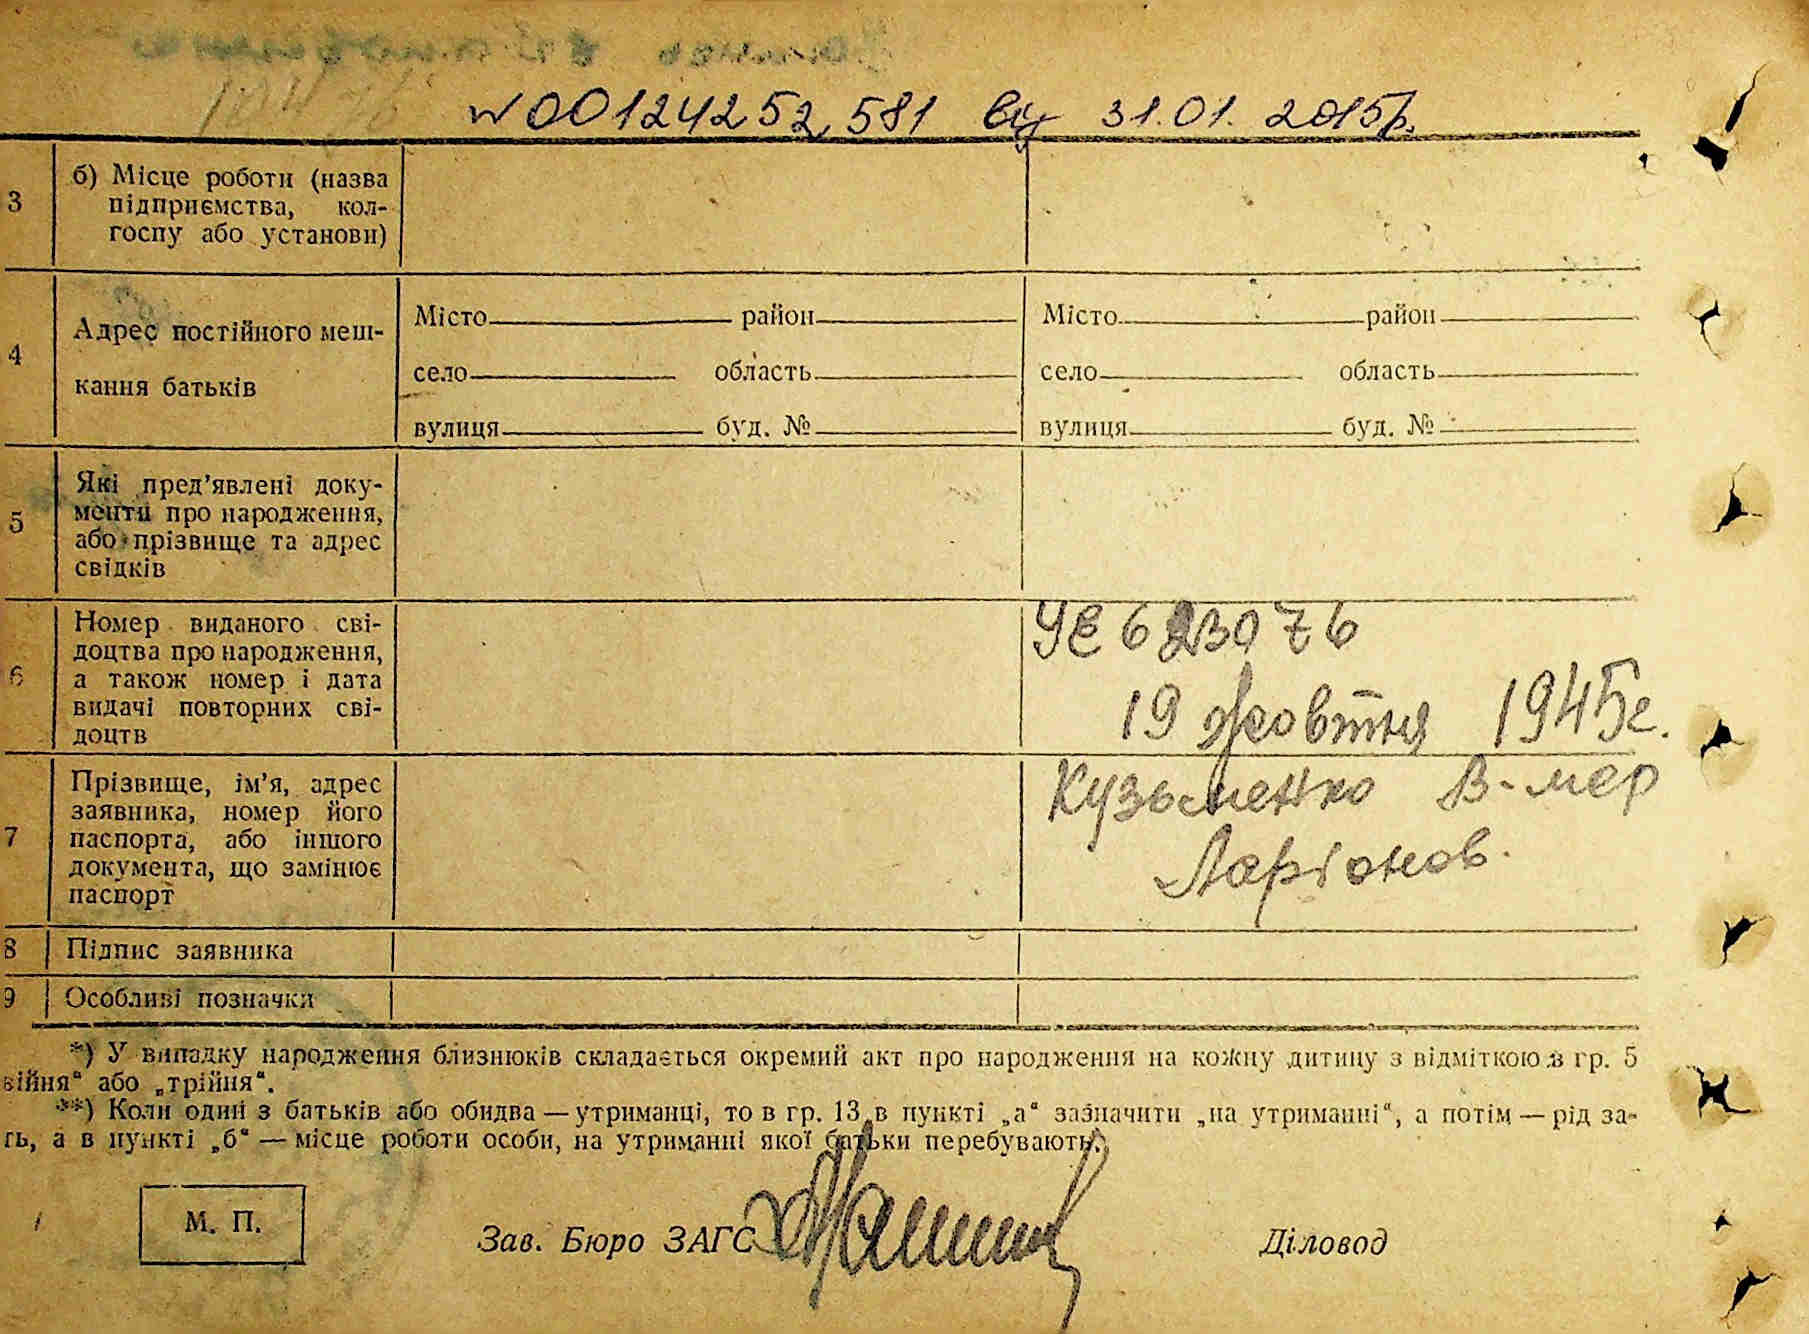 № 00124252581 від 31.01.2015р.
3 б) Місце роботи (назва
підприємства, кол-
госпу або установи)
4 Адрес постійного меш-
кання батьків
Місто район Місто район
село область село область
вулиця буд. № вулиця буд. №
5 Які пред'явлені доку-
менти про народження,
або прізвище та адрес
свідків
6 Номер виданого сві-
доцтва про народження,
а також номер і дата
видачі повторних сві-
доцтв
УЕ 623076
19 жовтня 1945г.
7 Прізвище, ім'я, адрес
заявника, номер його
паспорта, або іншого
документа, що замінює
паспорт
Кузьменко В-мер
Ларіонов.
8 Підпис заявника
9 Особливі позначки
*) У випадку народження близнюків складається окремий акт про народження на кожну дитину з відміткою в гр. 5
війня“ або „трійня“.
**) Коли один з батьків або обидва — утриманці, то в гр. 13 в пункті „а“ зазначити „на утриманні“, а потім — рід за-
ть, а в пункті „б“ — місце роботи особи, на утриманні якої батьки перебувають.
М. П.
Зав. Бюро ЗАГС
Діловод